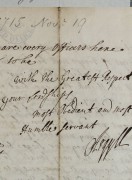 1715 Nov: 19
are every officers have
to be
with the Greatest Respect
your Lordships
most obedient and most
Humble servant
Argyll